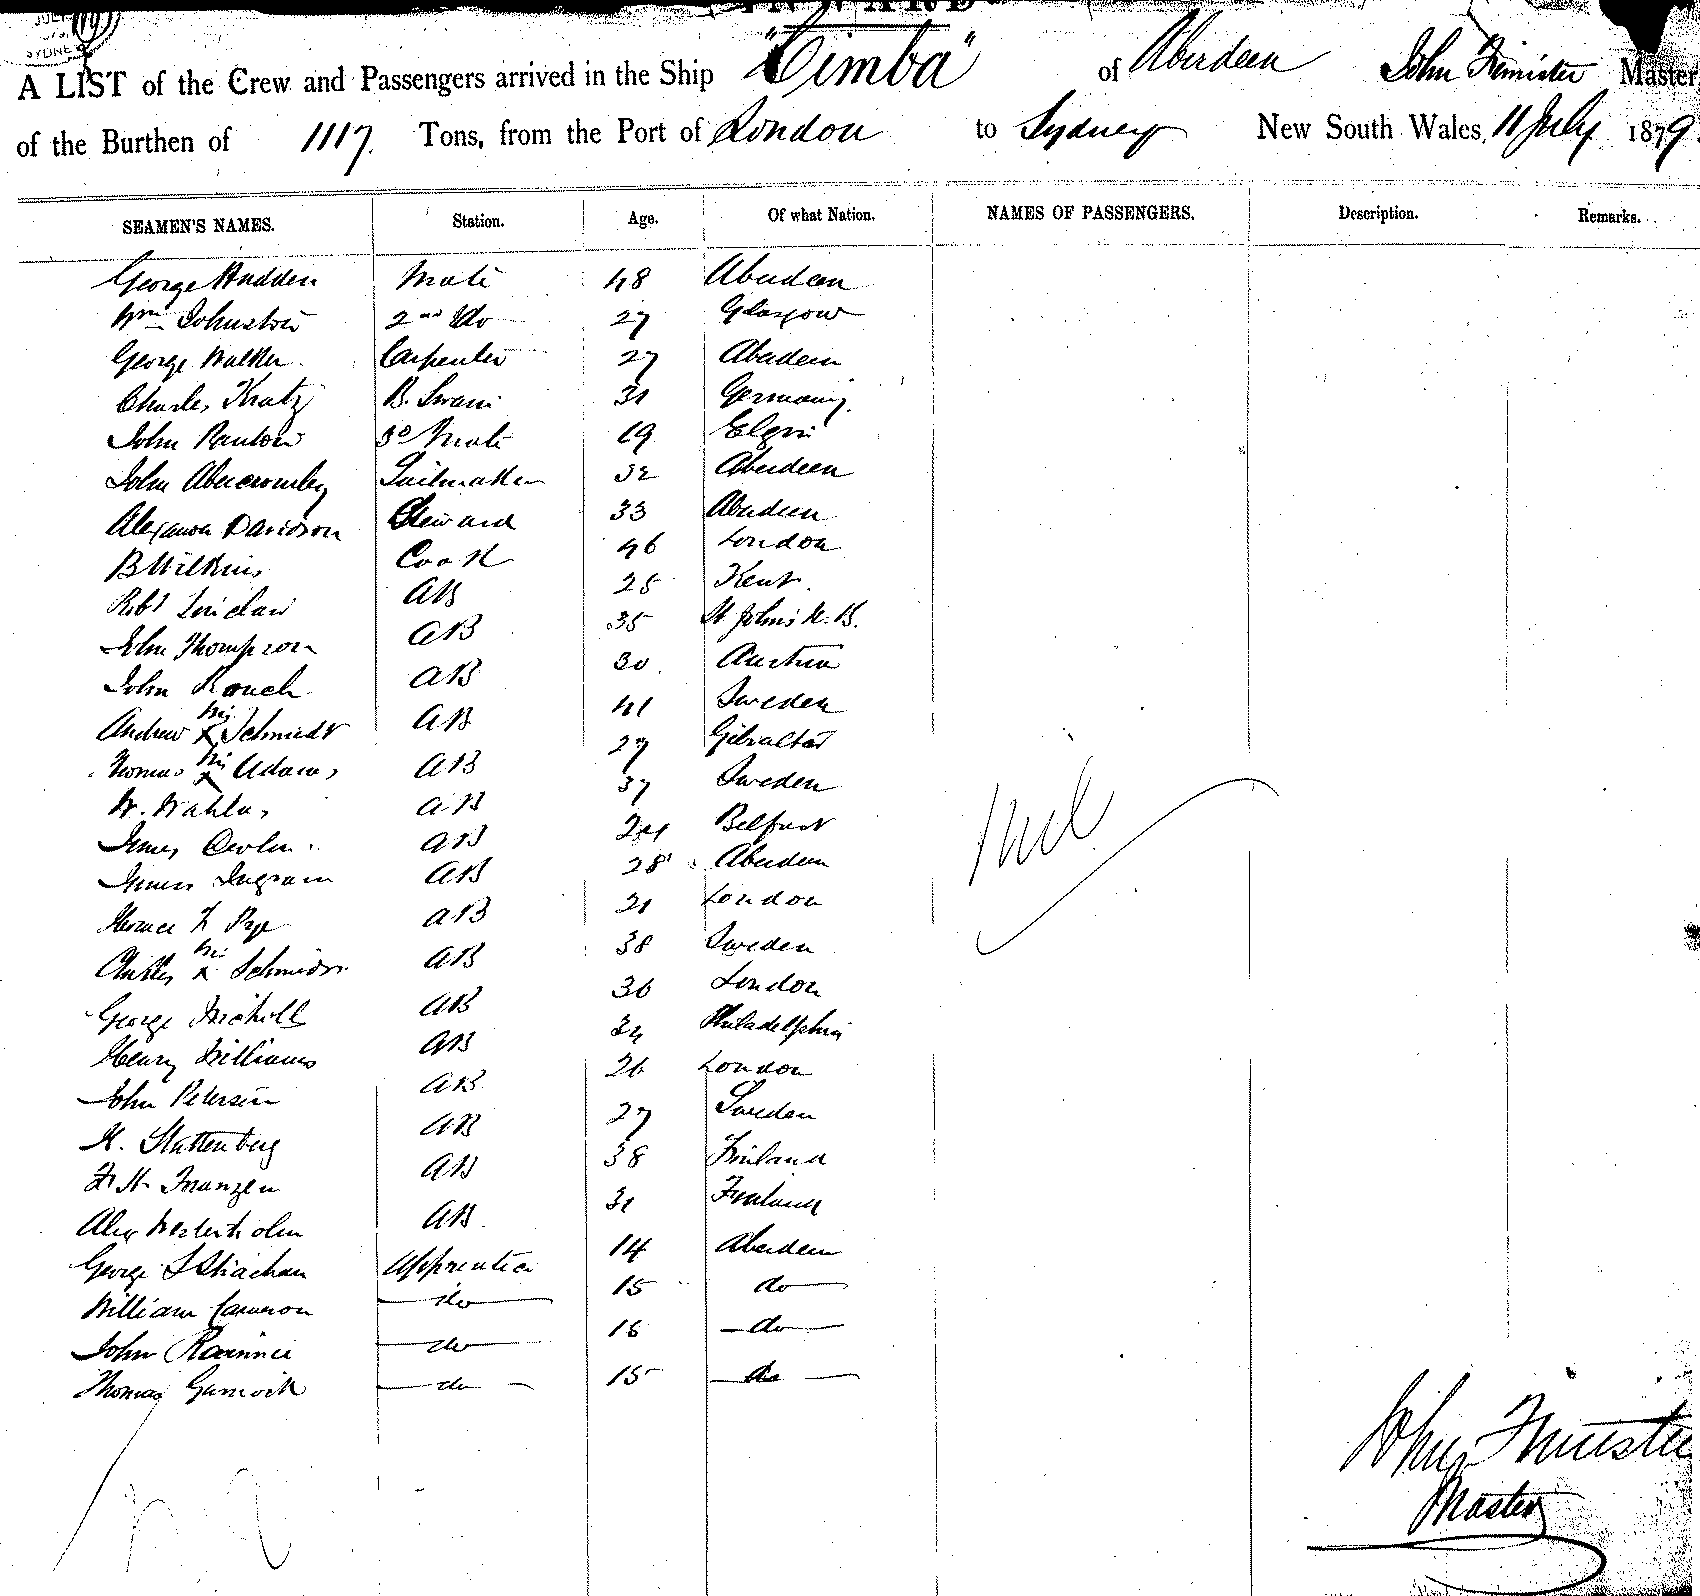 INWARD
JULY
SYDNEY
A LIST of the Crew and Passengers arrived in the Ship "Cimba" of Aberdeen John Fimister Master
of the Burthen of 1117 Tons, from the Port of London to Sydney New South Wales, 11 July 1879.
SEAMEN'S NAMES. Station. Age. Of what Nation. NAMES OF PASSENGERS. Description. Remarks.
George Hudden Mate 48 Aberdeen
Wm Johnston 2nd Do 27 Glasgow
George Walker Carpenter 27 Aberdeen
Charles Kratz B. Swain 31 Germany
John 3d Mate 19 Elgin
John Abercromby Sailmaker 32 Aberdeen
Alexander Davidson Steward 33 Aberdeen
B Wilkins Cook 46 London
Robt Sinclair AB 25 Kent
John Thompson AB 35 St John's N. B.
John Rouch AB 30 Austria
Andrew his X Schmidt AB 41 Sweden
Thomas his X Adams AB 27 Gibraltar
W. AB 37 Sweden
James Devlin AB 24 Belfast
James Ingram AB 28 Aberdeen
Horace F Pye AB 21 London
Charles his X Schmidt AB 38 Sweden
George Nicholls AB 36 London
Henry Williams AB 34 Philadelphia
John Petersen AB 26 London
K. Stattenberg AB 27 Sweden
F. H. Franzen AB 38 Finland
Alex Westerholm AB 31 Finland
George S Strachan Apprentice 14 Aberdeen
William Cameron do 15 do
John Rennie do 16 do
Thomas Garrioch do 15 do
Nil
John Fimister
Master